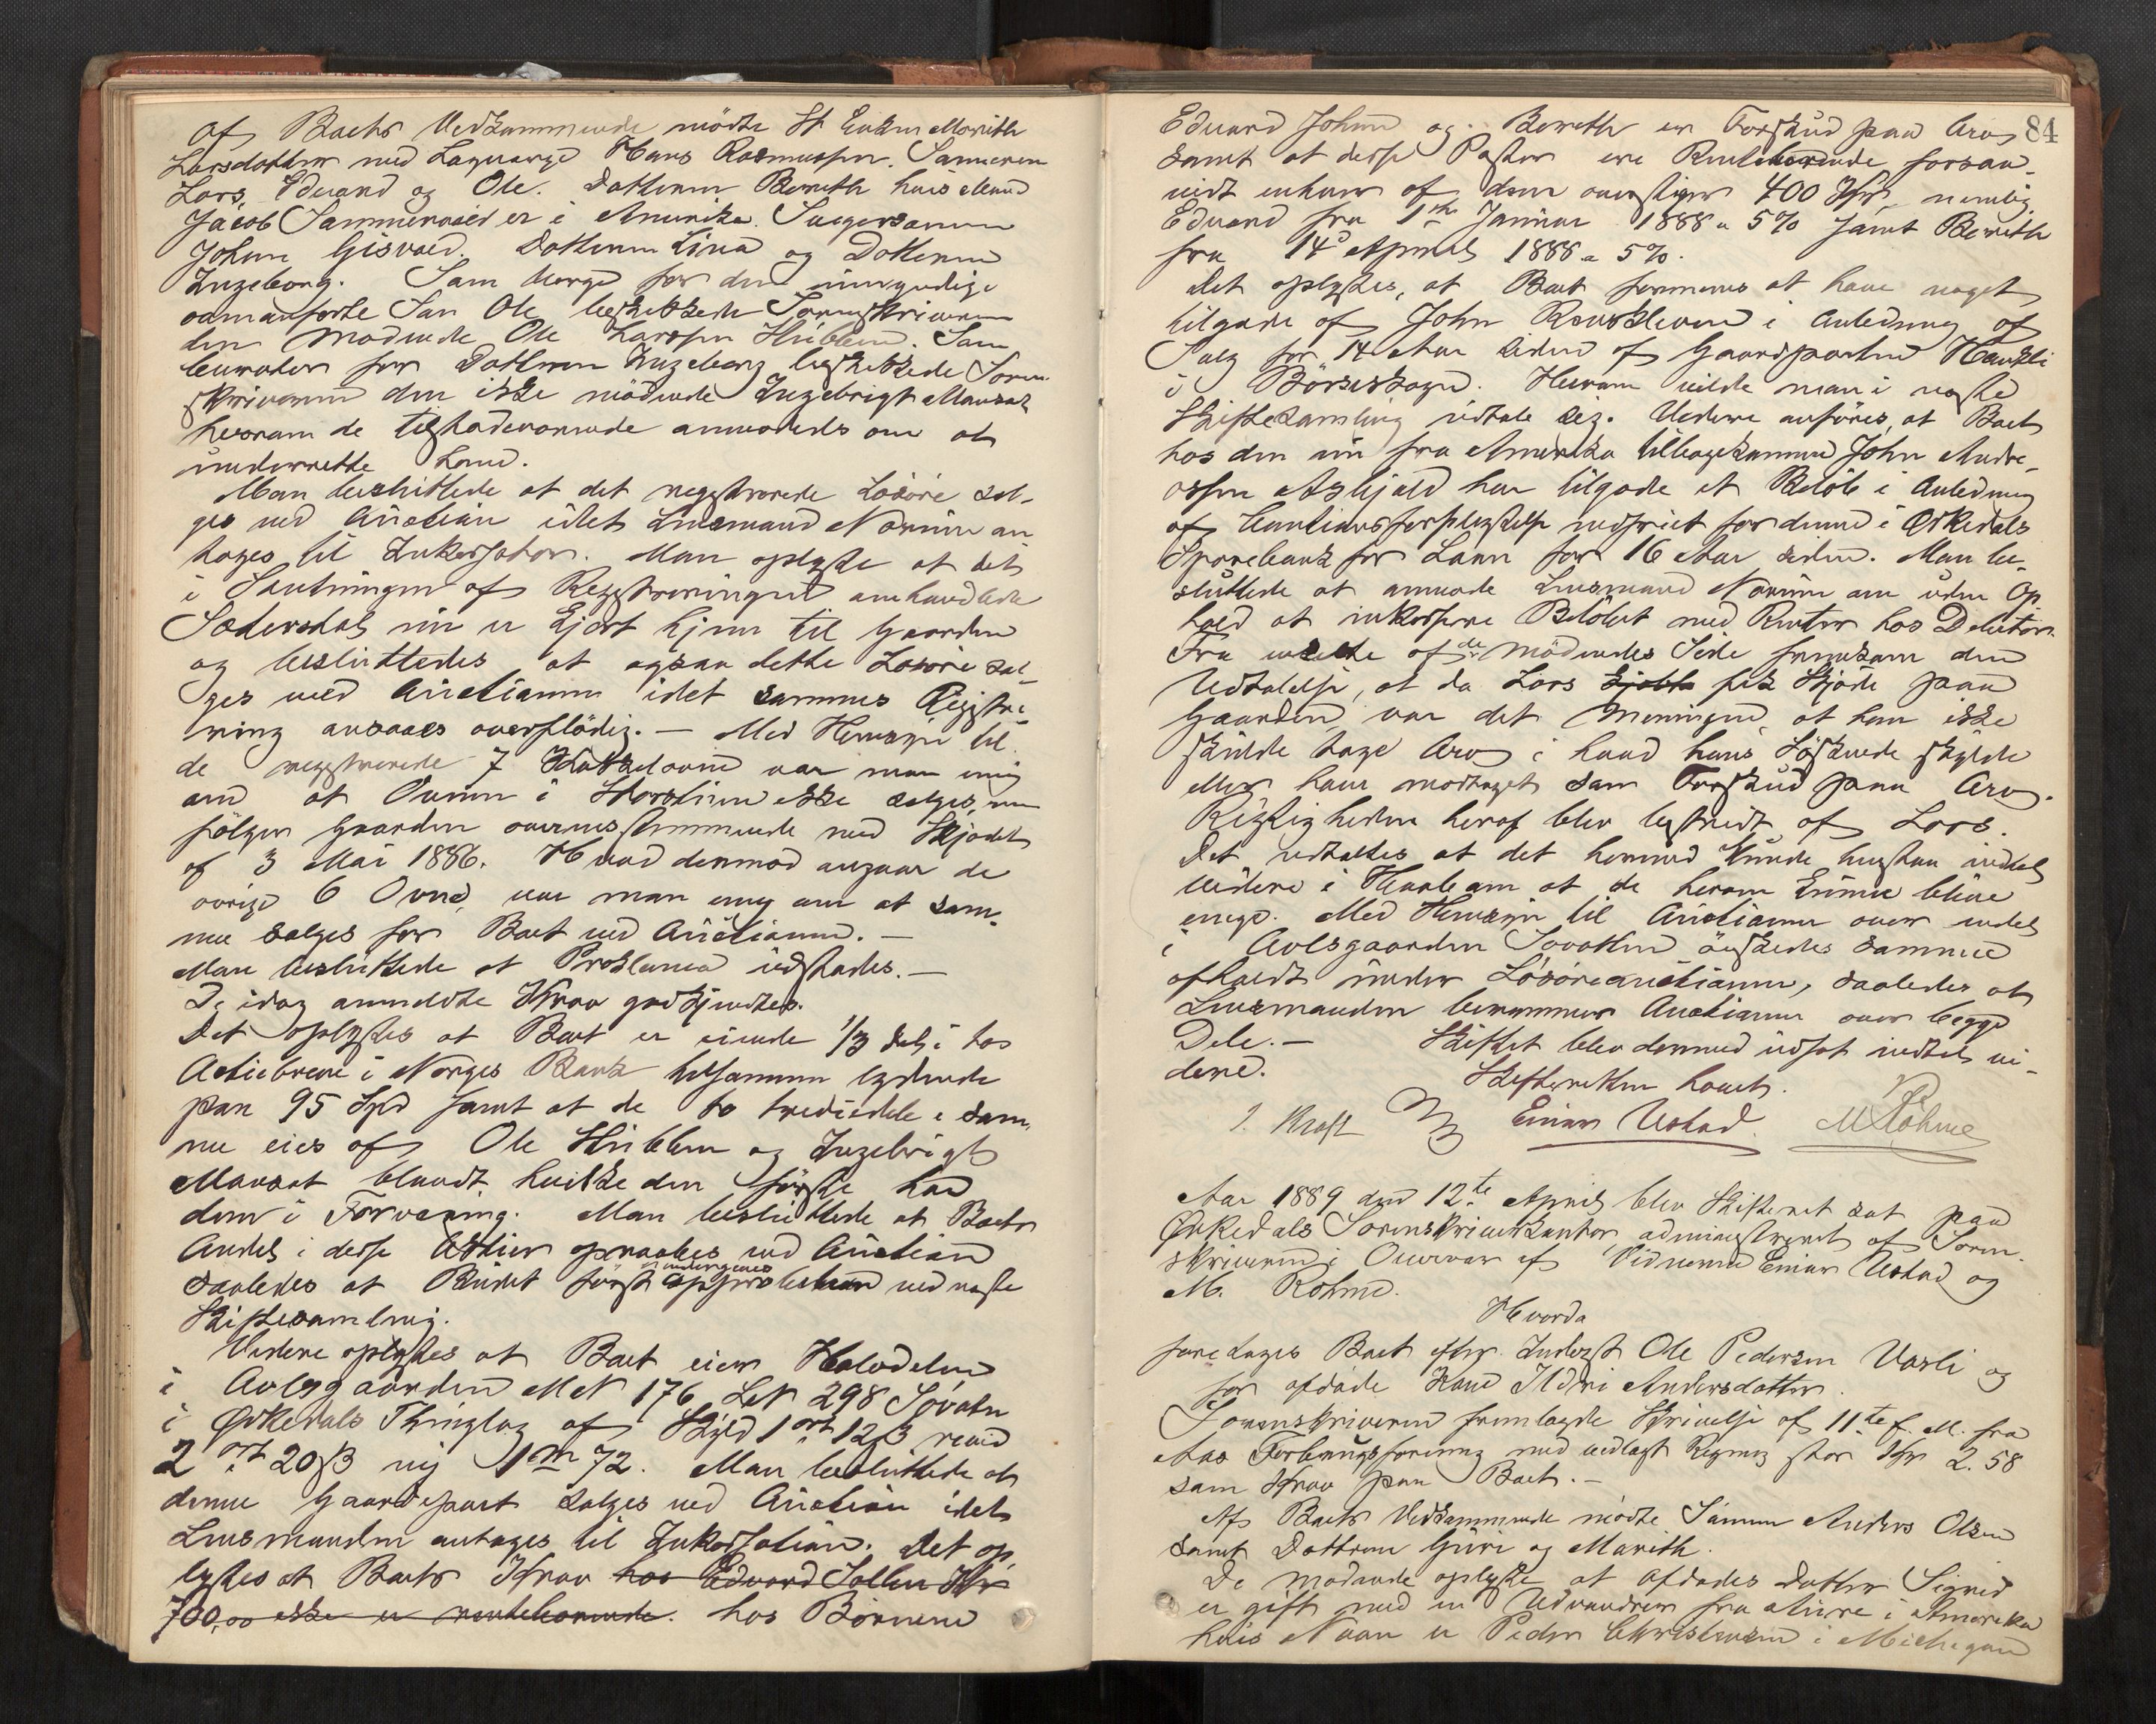 Af Boets Vedkommende mödte St Enken Marith
Larsdatter med Laugværge Hans Rasmussen. Sønnerne
Lars, Edvard og Ole. Datteren Bereth hvis Mand
Jacob Sammervold er i Amerika. Svigersønnen
Johan Gisvold. Datteren Lina og Datteren
Ingeborg. Som Værge for den umyndige
ovenanførte Søn Ole beskikkede Sorenskriveren
den mødende Ole Larssen Hüblein. Som
Curator for Datteren Ingeborg beskikkede Soren-
skriveren den ikke mødende Ingebrigt Mansat
hvorom de tilstedeværende anmodedes om at
underrette ham.
Man besluttede at det registrerede Løsøre sæl-
ges ved Auction idet Lensmand Norum an
tages til Inkassator. Man oplyste at det
i Slutningen af Registreringen omhandlede
Sædersdal nu er kjørt hjem til Gaarden
og besluttedes at ogsaa dette Løsøre sæl-
ges ved Auctionen idet sammes Registre-
ring ansaaes overflødig. — Med Hensyn til
de registrerede 7 Kakkelovne var man enig
om at Ovnen i Storstuen ikke sælges, men
følger Gaarden overensstemmende med Skjødet
af 3 Mai 1886. Hvad derimod angaar de
øvrige 6 Ovne, var man enig om at sam-
me sælges for Boet ved Auctionen. —
Man besluttede at Proklama udstedes. —
De idag anmeldte Krav godkjendtes.
Det oplystes at Boet er eiende 1/3 Del i to
Actiebreve i Norges Bank tilsammen lydende
paa 95 Spd samt at de to trediedele i sam-
me eies af Ole Hüblein og Ingebrigt
Mansat blandt hvilke den første har
dem i Forvaring. Man besluttede at Boets
Andel i disse Aktier opraabes ved Auction
saaledes at Budet først undergives approbation ved næste
Skiftesamling.
Videre oplystes at Boet eier Halvdelen
i Avlsgaarden M N 176 L N 298 Sovatn
i Ørkedals Thinglag af Skyld 1 ort 12 ß revid
2 ort 20 ß ny 1 m 72. Man besluttede at
denne Gaardepart sælges ved Auction idet
Lensmanden antages til Inkassation. Det op-
lystes at Boets Krav hos Edvard Sollien Kr
700,00 ikke er rentebærende. hos Børnene
84
Edvard Johan og Bereth er Forskud paa Arv
samt at disse Poster ere Rentebærende forsaa-
vidt enhver af dem overstiger 400 Kr nemlig
Edvard fra 1ste Januar 1888 a 5% samt Bereth
fra 14d April 1888 a 5%.
Det oplystes, at Boet formenes at have noget
tilgode af John Rønskleven i Anledning af
Salg for 14 Aar siden af Gaardparten Haukli
i Börseskogn. Herom vilde man i næste
Skiftesamling udtale sig. Videre anføres, at Boet
hos den nu fra Amerika tilbagekomne John Andre-
assen Askjold har tilgode et Beløb i Anledning
af Cautionsforpligtelse indfriet for denne i Ørkedals
Sparebank for Laan for 16 Aar siden. Man be-
sluttede at anmode Lensmand Norum om uden Op
hold at inkassere Beløbet med Renter hos Debitor.
Fra enkelte af de mödendes Side fremkom den
Udtalelse, at da Lars kjøbte fik Skjøde paa
Gaarden, var det Meningen at han ikke
skulde tage Arv i hvad hans Söskende skylde
eller have modtaget som Forskud paa Arv.
Rigtigheden heraf blev bestridt af Lars.
Det udtaltes at det hermed kunde henstaa indtil
videre i Haab om at de herom kunne blive
enige. Med Hensyn til Auctionen over Andel
i Avlsgaarden Sovatten önskedes samme
afholdt under Løsøreauctionen, saaledes at
Lensmanden berammer Auctionen over begge
Dele. — Skiftet blev dermed udsat indtil vi-
dere. Skifteretten hævet.
J. Kraft Einar Ustad. M Röhme
Aar 1889 den 12te April blev Skifteret sat paa
Ørkedals Sorenskriverkontor administreret af Soren-
skriveren i Overvær af Vidnerne Einar Ustad og
M. Röhme.
Hvorda
foretages Boet efter Inderst Ole Pedersen Vasli og
før afdøde Kone Ildri Andersdatter.
Sorenskriveren fremlagde Skrivelse af 11te f. M. fra
Aas Forbrugsforening med vedlagt Regning stor Kr 2.58
som Krav paa Boet. —
Af Boets Vedkommende mødte Sønnen Anders Olsen
samt Døttrene Guri og Marith.
De mødende oplyste at Afdødes Datter Sigrid
er gift med en Udvandrer fra Aure i Amerika
hvis Navn er Peder Christensen i Michegan